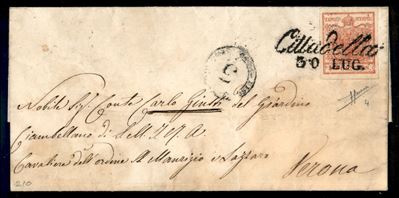 Cittadella
30 LUG.
C
Nobile Sig. Conte Carlo Giusti del Giardino
Ciambellano di S.M.I.R.A.
Cavaliere dell'ordine S. Maurizio e Lazzaro
Verona
210
4